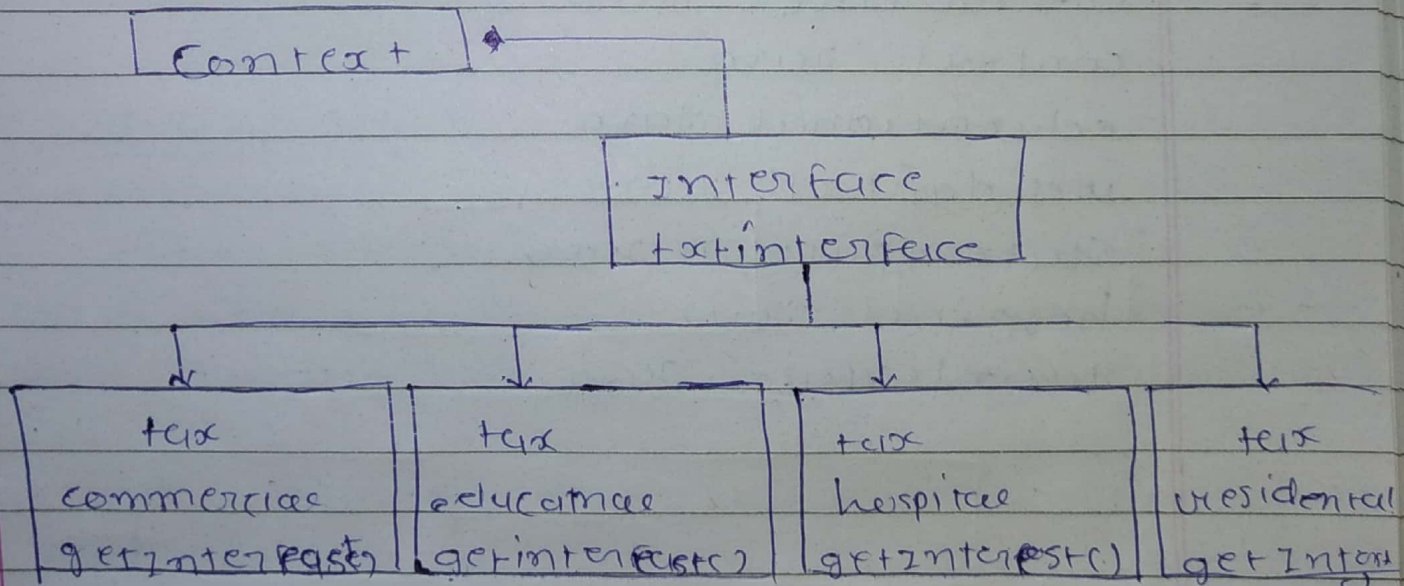 Context
Interface
txtinterface
tax
commercial
getInterest()
tax
educatnal
getinterest()
tax
hospital
getInterest()
tax
residental
getInterest